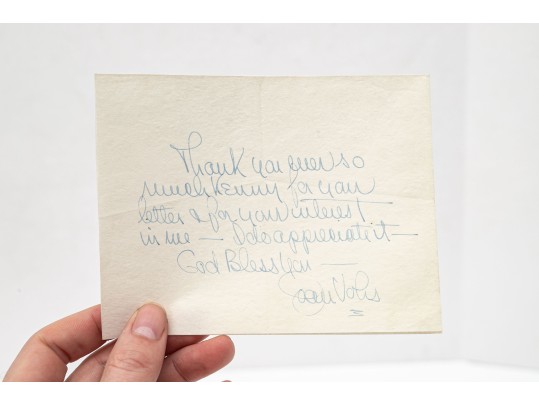 Thank you ever so
much Kenny for your
letter & for your interest
in me — I do appreciate it —
God Bless You —
Joan